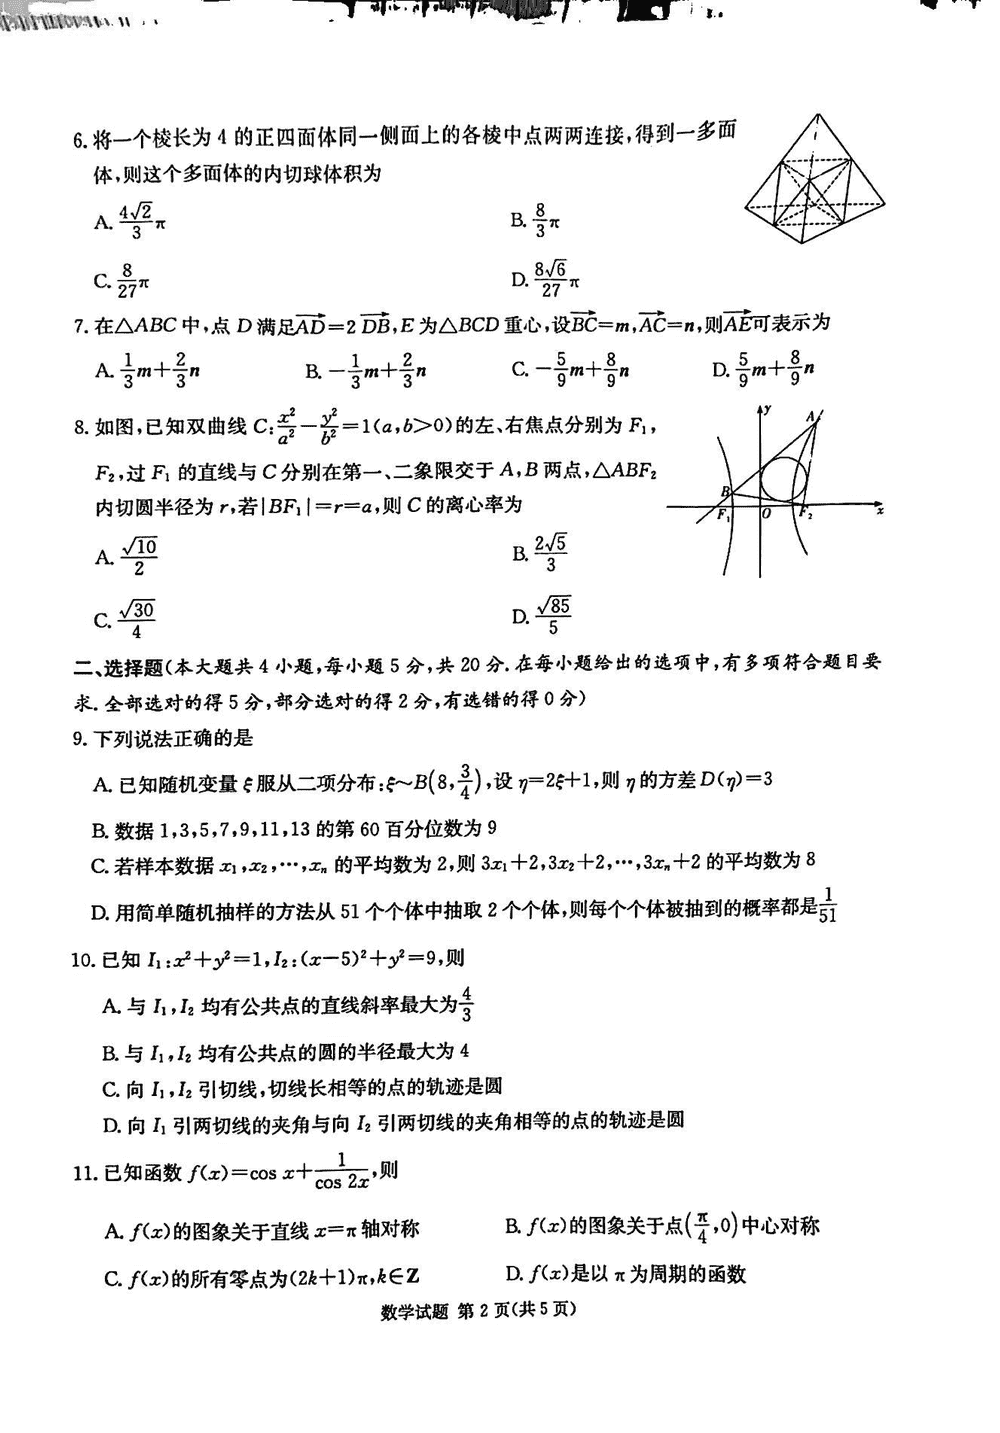 6. 将一个棱长为 4 的正四面体同一侧面上的各棱中点两两连接,得到一多面
体,则这个多面体的内切球体积为
A. $\frac{4\sqrt{2}}{3}\pi$ B. $\frac{8}{3}\pi$
C. $\frac{8}{27}\pi$ D. $\frac{8\sqrt{6}}{27}\pi$
7. 在△ABC 中,点 D 满足$\overrightarrow{AD}=2\overrightarrow{DB}$,E 为△BCD 重心,设$\overrightarrow{BC}=m,\overrightarrow{AC}=n$,则$\overrightarrow{AE}$可表示为
A. $\frac{1}{3}m+\frac{2}{3}n$ B. $-\frac{1}{3}m+\frac{2}{3}n$ C. $-\frac{5}{9}m+\frac{8}{9}n$ D. $\frac{5}{9}m+\frac{8}{9}n$
8. 如图,已知双曲线 C:$\frac{x^2}{a^2}-\frac{y^2}{b^2}=1$(a,b>0)的左、右焦点分别为 F₁,
F₂,过 F₁ 的直线与 C 分别在第一、二象限交于 A,B 两点,△ABF₂
内切圆半径为 r,若|BF₁|=r=a,则 C 的离心率为
y
A
B
F₁
O
F₂
x
A. $\frac{\sqrt{10}}{2}$ B. $\frac{2\sqrt{5}}{3}$
C. $\frac{\sqrt{30}}{4}$ D. $\frac{\sqrt{85}}{5}$
二、选择题(本大题共 4 小题,每小题 5 分,共 20 分. 在每小题给出的选项中,有多项符合题目要
求. 全部选对的得 5 分,部分选对的得 2 分,有选错的得 0 分)
9. 下列说法正确的是
A. 已知随机变量 ξ 服从二项分布:ξ~B(8,$\frac{3}{4}$),设 η=2ξ+1,则 η 的方差 D(η)=3
B. 数据 1,3,5,7,9,11,13 的第 60 百分位数为 9
C. 若样本数据 x₁,x₂,…,xₙ 的平均数为 2,则 3x₁+2,3x₂+2,…,3xₙ+2 的平均数为 8
D. 用简单随机抽样的方法从 51 个个体中抽取 2 个个体,则每个个体被抽到的概率都是$\frac{1}{51}$
10. 已知 I₁:x²+y²=1,I₂:(x-5)²+y²=9,则
A. 与 I₁,I₂ 均有公共点的直线斜率最大为$\frac{4}{3}$
B. 与 I₁,I₂ 均有公共点的圆的半径最大为 4
C. 向 I₁,I₂ 引切线,切线长相等的点的轨迹是圆
D. 向 I₁ 引两切线的夹角与向 I₂ 引两切线的夹角相等的点的轨迹是圆
11. 已知函数 f(x)=cos x+$\frac{1}{\cos 2x}$,则
A. f(x)的图象关于直线 x=π 轴对称 B. f(x)的图象关于点($\frac{\pi}{4}$,0)中心对称
C. f(x)的所有零点为(2k+1)π,k∈Z D. f(x)是以 π 为周期的函数
数学试题 第 2 页(共 5 页)